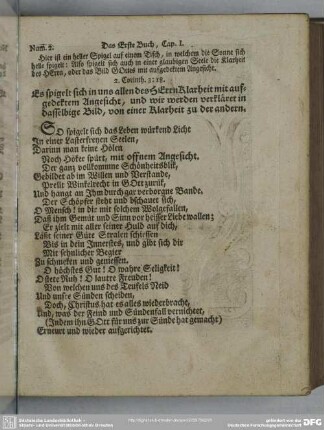 Num. 2. Das Erste Buch, Cap. I.
Hier ist ein heller Spiegel auf einem Tisch, in welchem die Sonne sich
helle spiegelt: Also spiegelt sich auch in einer glaubigen Seele die Klarheit
des HErrn, oder das Bild GOttes mit aufgedecktem Angesicht.
2. Corinth. 3:18.
Es spigelt sich in uns allen des HErrn Klarheit mit auf-
gedektem Angesicht, und wir werden verkläret in
dasselbige Bild, von einer Klarheit zu der andern.
SO spigelt sich das Leben würkend Licht
In einer Lasterfreyen Seelen,
Darinn man keine Hölen
Noch Höker spürt, mit offnem Angesicht.
Der ganz vollkommne Schönheitsblik,
Gebildet ab in Willen und Verstande,
Prellt Winkelrecht in GOtt zurük,
Und hangt an Ihm durch gar verborgne Bande.
Der Schöpfer steht und bschauet sich,
O Mensch! in dir mit solchem Wolgefallen,
Daß ihm Gemüt und Sinn vor heisser Liebe wallen;
Er zielt mit aller seiner Huld auf dich,
Läßt seiner Güte Stralen schiessen
Bis in dein Innerstes, und gibt sich dir
Mit sehnlicher Begier
Zu schmeken und geniessen.
O höchstes Gut! O wahre Seligkeit!
O stete Ruh! O lautre Freuden!
Von welchen uns des Teufels Neid
Und unsre Sünden scheiden,
Doch, Christus hat es alles wiederbracht,
Und, was der Feind und Sündenfall vernichtet,
(Indem ihn GOtt für uns zur Sünde hat gemacht)
Erneurt und wieder aufgerichtet.